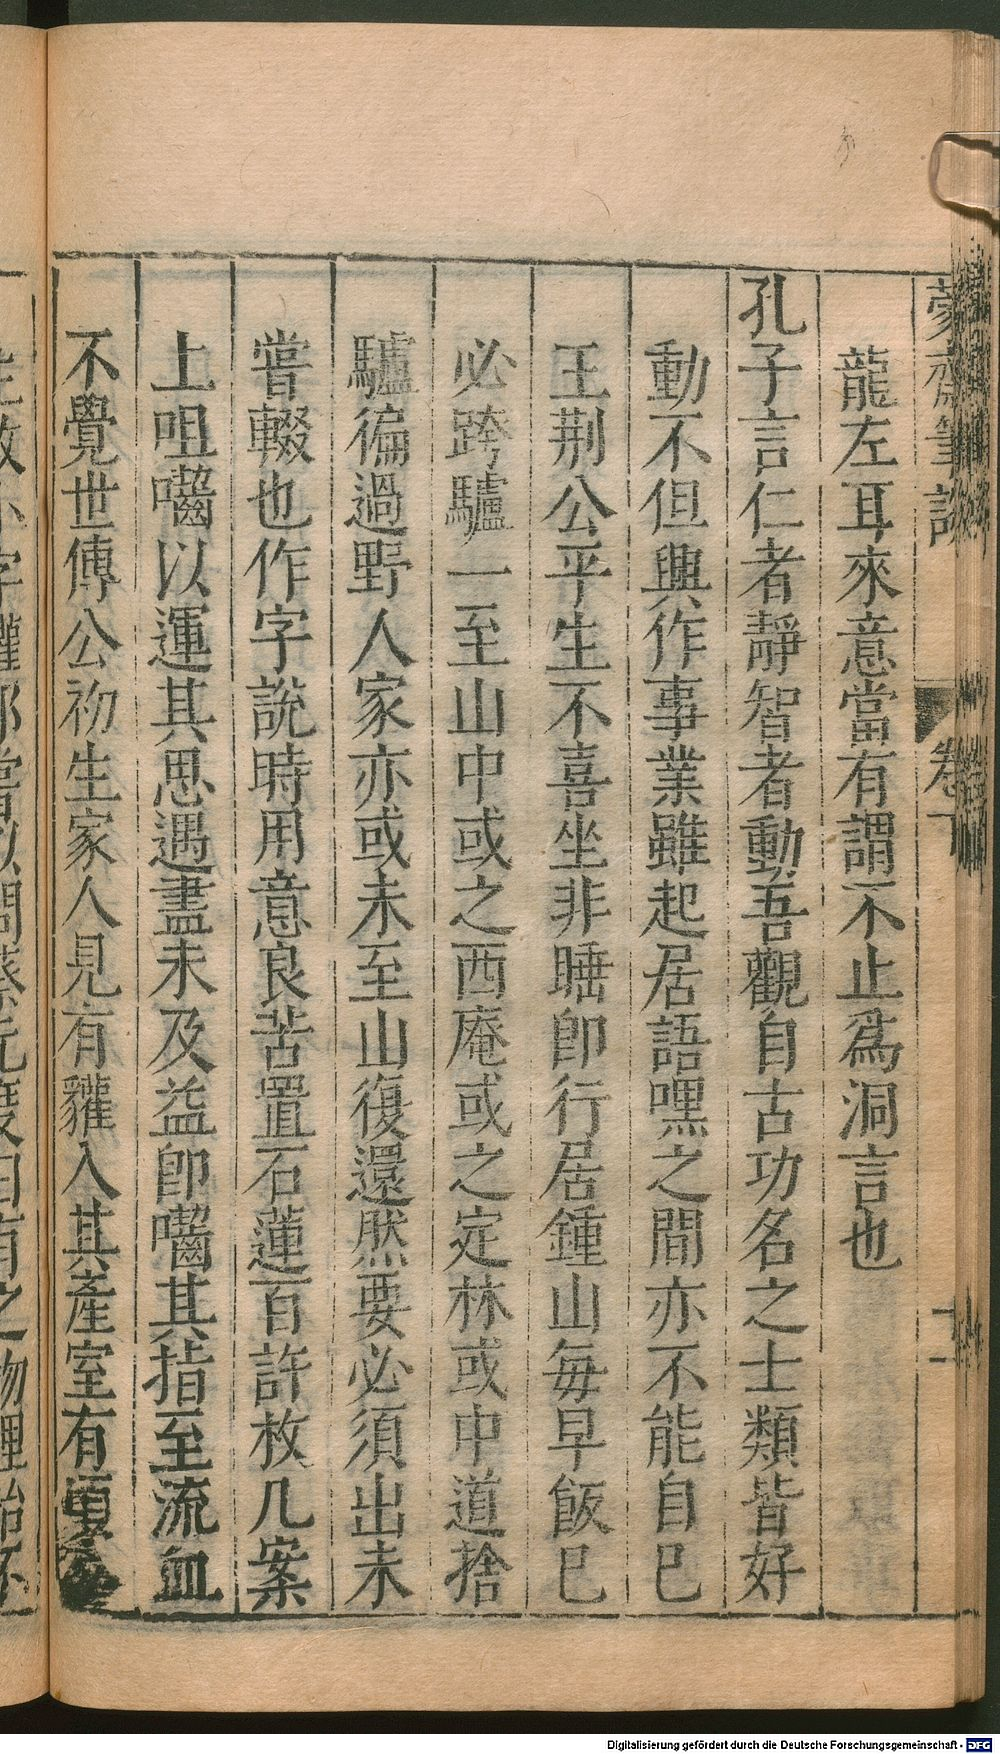 蒙齋筆談
卷下
十一
龍左耳來意當有謂不止爲洞言也
孔子言仁者靜智者動吾觀自古功名之士類皆好
動不但興作事業雖起居語嘿之間亦不能自已
王荆公平生不喜坐非睡卽行居鍾山每早飯已
必跨驢一至山中或之西庵或之定林或中道捨
驢徧過野人家亦或未至山復還然要必須出未
嘗輟也作字說時用意良苦置石蓮百許枚几案
上咀嚙以運其思遇盡未及益卽嚙其指至流血
不覺世傳公初生家人見有貛入其產室有頃
Digitalisierung gefördert durch die Deutsche Forschungsgemeinschaft - DFG